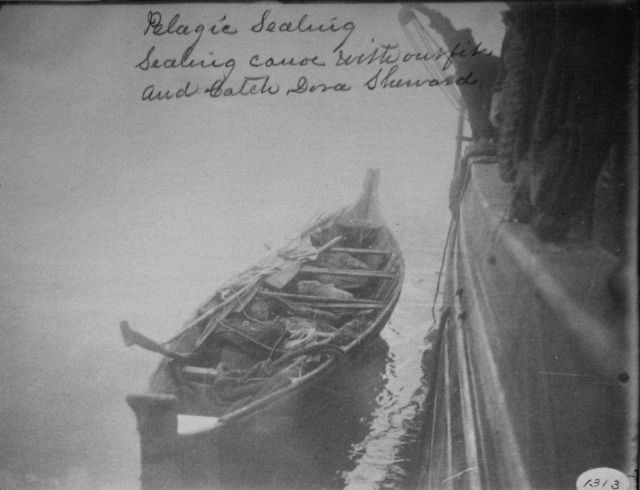 Pelagic Sealing
Sealing canoe with outfit
and Catch Dora Sheward
1313